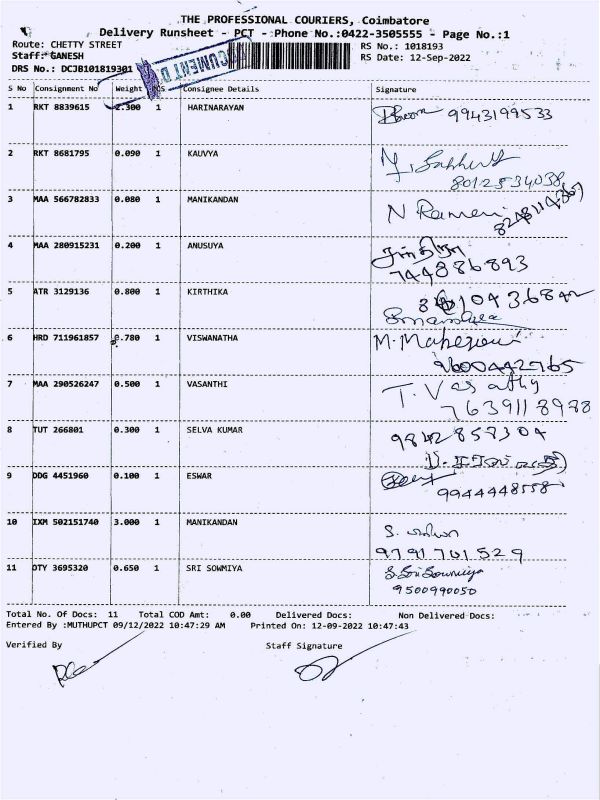 THE PROFESSIONAL COURIERS, Coimbatore
Delivery Runsheet - PCT - Phone No.:0422-3505555 - Page No.:1
Route: CHETTY STREET RS No.: 1018193
Staff: GANESH RS Date: 12-Sep-2022
DRS No.: DCJB101819301
DOCUMENT D
S No Consignment No Weight PCS Consignee Details Signature
1 RKT 8839615 2.300 1 HARINARAYAN 9943199533
2 RKT 8681795 0.090 1 KAUVYA
8012534038
3 MAA 566782833 0.080 1 MANIKANDAN N
4 MAA 280915231 0.200 1 ANUSUYA
744886893
5 ATR 3129136 0.800 1 KIRTHIKA
6 HRD 711961857 0.780 1 VISWANATHA M. Maheswari
9600442765
7 MAA 290526247 0.500 1 VASANTHI T. Vasanthy
7639118978
8 TUT 266801 0.300 1 SELVA KUMAR 9842857304
9 DDG 4451960 0.100 1 ESWAR
9944448558
10 IXM 502151740 3.000 1 MANIKANDAN S.
9791701529
11 OTY 3695320 0.650 1 SRI SOWMIYA S. Sri Sowmiya
9500990050
Total No. Of Docs: 11 Total COD Amt: 0.00 Delivered Docs: Non Delivered Docs:
Entered By :MUTHUPCT 09/12/2022 10:47:29 AM Printed On: 12-09-2022 10:47:43
Verified By Staff Signature